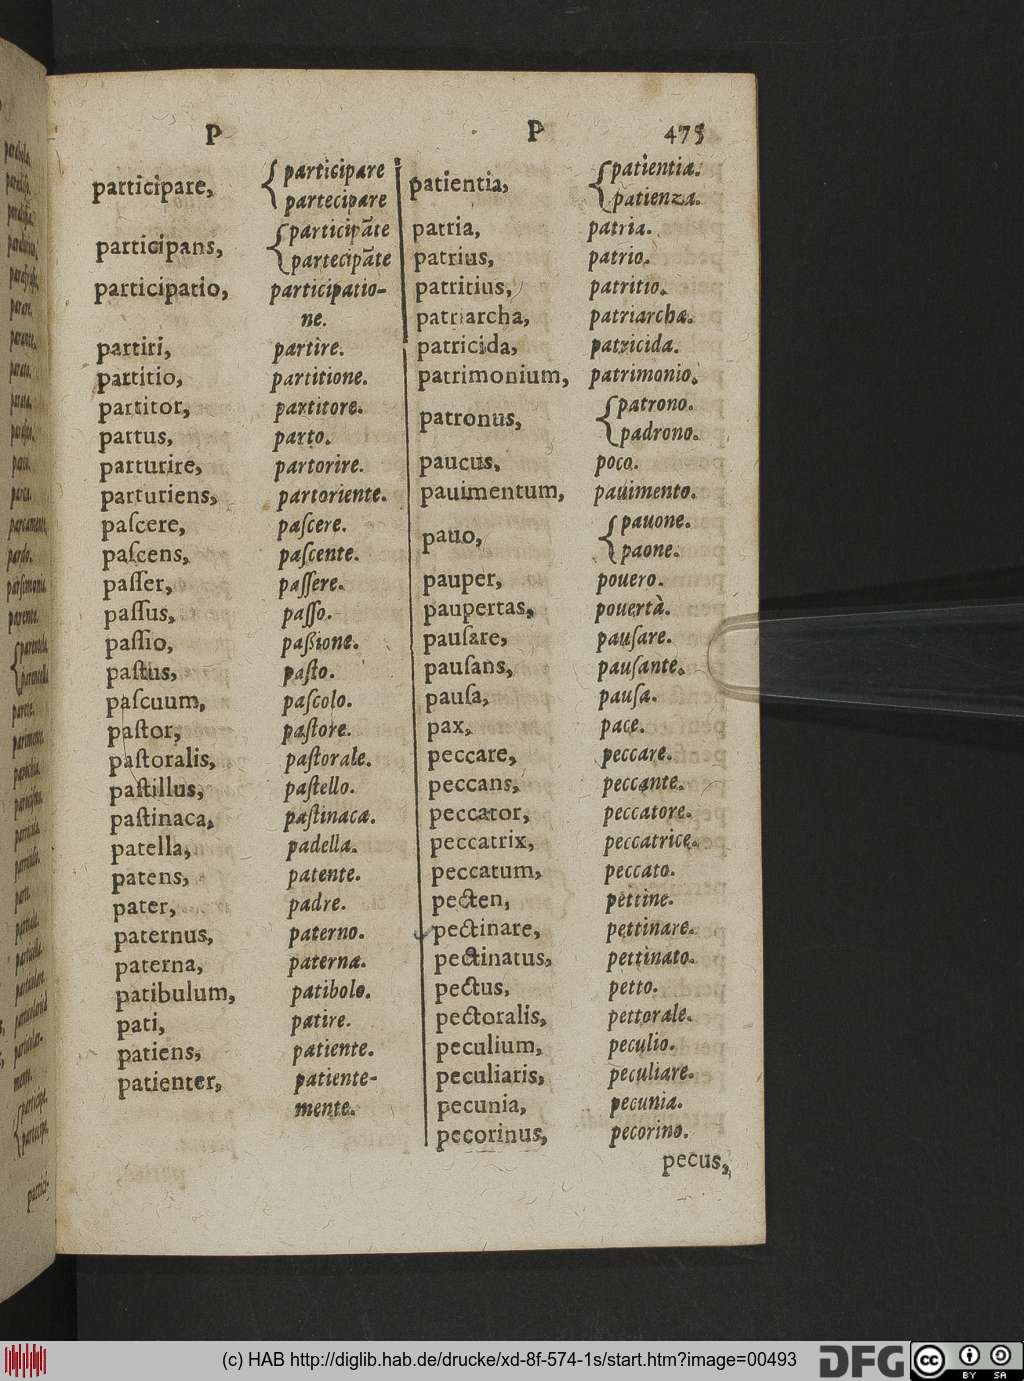 P P 475
participare, {participare
partecipare
participans, {participāte
partecipāte
participatio, participatio-
ne.
partiri, partire.
partitio, partitione.
partitor, partitore.
partus, parto.
parturire, partorire.
parturiens, partoriente.
paſcere, paſcere.
paſcens, paſcente.
paſſer, paſſere.
paſſus, paſſo.
paſſio, paßione.
paſtus, paſto.
paſcuum, paſcolo.
paſtor, paſtore.
paſtoralis, paſtorale.
paſtillus, paſtello.
paſtinaca, paſtinaca.
patella, padella.
patens, patente.
pater, padre.
paternus, paterno.
paterna, paterna.
patibulum, patibolo.
pati, patire.
patiens, patiente.
patienter, patiente-
mente.
patientia, {patientia.
patienza.
patria, patria.
patrius, patrio.
patritius, patritio.
patriarcha, patriarcha.
patricida, patricida.
patrimonium, patrimonio.
patronus, {patrono.
padrono.
paucus, poco.
pauimentum, pauimento.
pauo, {pauone.
paone.
pauper, pouero.
paupertas, pouertà.
pauſare, pauſare.
pauſans, pauſante.
pauſa, pauſa.
pax, pace.
peccare, peccare.
peccans, peccante.
peccator, peccatore.
peccatrix, peccatrice.
peccatum, peccato.
pecten, pettine.
pectinare, pettinare.
pectinatus, pettinato.
pectus, petto.
pectoralis, pettorale.
peculium, peculio.
peculiaris, peculiare.
pecunia, pecunia.
pecorinus, pecorino.
pecus,
(c) HAB http://diglib.hab.de/drucke/xd-8f-574-1s/start.htm?image=00493
DFG
cc
BY SA